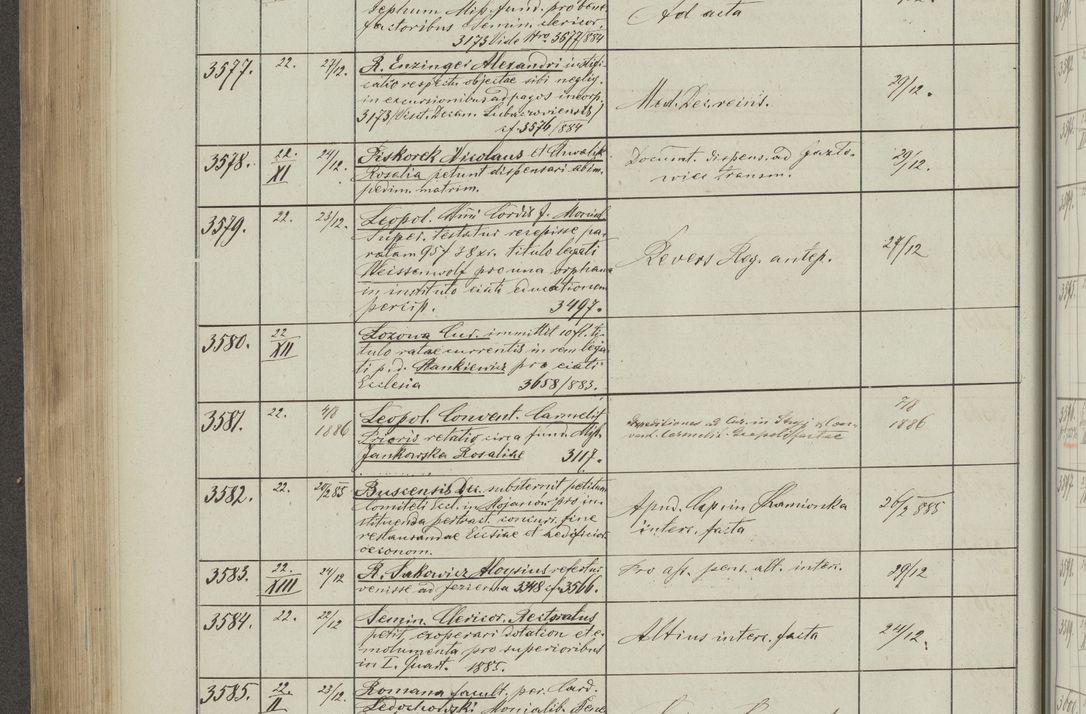 factoribus Semin. clericor.
3173 Vide Nro 3677/884
Ad acta
3577. 22. 27/12. R. Enzinger Alexandri justifi-
catio respectu objectae sibi neglig.
in excursionibus ad pagos incorp.
3173/Visit. Decan. Lubaczoviensis/
cf. 3576/884
29/12.
3578. 22. XI 24/12. Piskorek Nicolaus et Chwałyk
Rosalia petunt dispensari ab im-
pedim. matrim.
Docum. dispens. ad Gazło-
wice transm.
29/12.
3579. 22. 23/12. Leopol. Cordis J. Monial.
Super. testatur recepisse pa-
ratam 95 f 38 xr. titulo legati
Weissenwolf pro una orphana
in instituto ciati educationem
percip. 3497.
Revers Reg. antep.
27/12
3580. 22 XII Łozowa Cur. immittit ti-
tulo ratae currentis in rem lega-
ti p. d. Stankiewicz pro ciati
Ecclesia 3658/883.
3581. 22. 4/8 1886 Leopol. Convent. Carmelit
Prioris relatio circa fund. Mis.
Jankowska Rosaliae 3117.
7/8 1886
3582. 22. 20/2 85 Buscensis Dec. substernit petitum
Comiteti Eccl. in Stojanów pro in-
stituenda pertract. concurr. fine
restaurandae Ecclsiae et aedificior.
oeconom.
apud Cap in Kamionka
interc. facta
26/2 885
3583. 22. XIII 24/12 R. Sakowicz Aloysius refertur
venisse ad Jezierna 3348 cf 3566.
Pro aps. pens. alt. interc.
29/12
3584. 22. 22/12 Semin. Clericor. Rectoratus
petit, exoperari dotation et e-
molumenta pro superioribus
in I. Quart. 1885.
Altius interc. facta
24/12.
3585. 22. II 23/12. Romana facult. per. Card.
Ledochowski Monialib. Bene